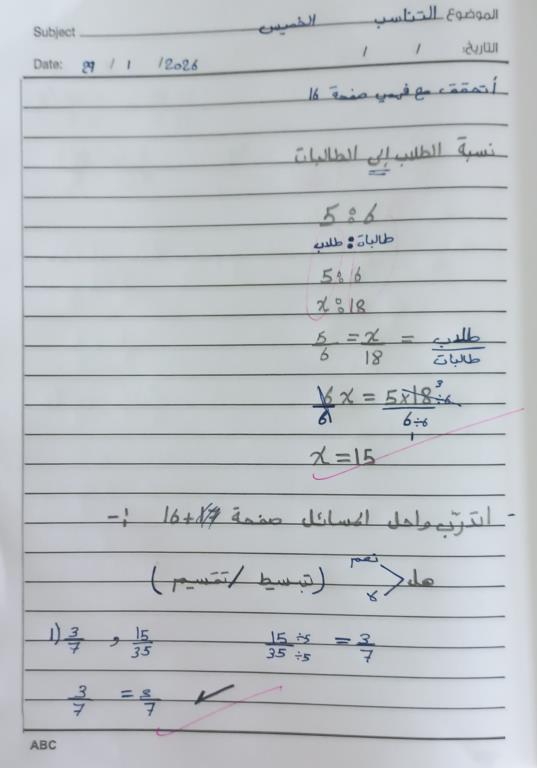 الموضوع التناسب الخميس Subject
التاريخ: / / Date: 29 / 1 /2026
أتحقق مع فهمي صفحة 16
نسبة الطلاب إلى الطالبات
5:6
طالبات : طلاب
5:6
x:18
5/6 = x/18 = طلاب/طالبات
6x/6 = 5×18÷6/6÷6 3 1
x=15
- أتدرب واحل المسائل صفحة 16+17 :-
هل نعم لا (تبسيط / تقسيم)
1) 3/7 , 15/35 15÷5/35÷5 = 3/7
3/7 = 3/7 ✓
ABC